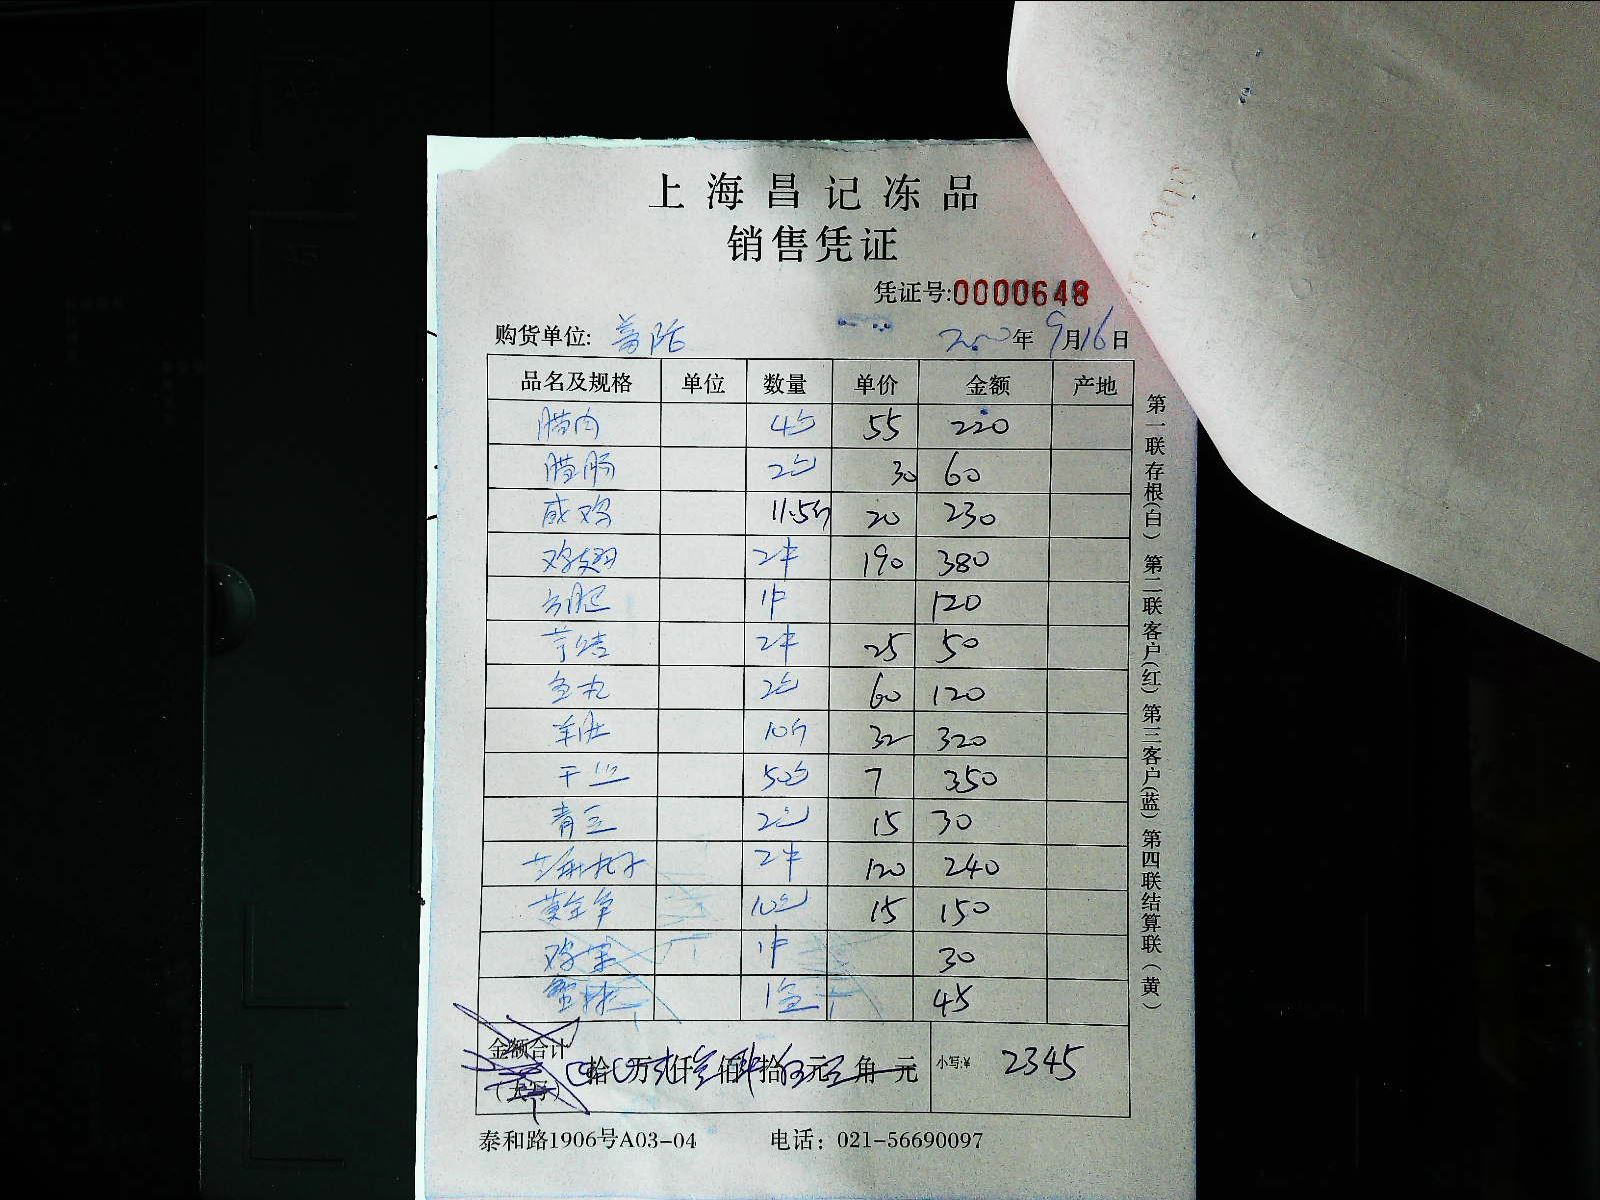 上海昌记冻品
销售凭证
凭证号:0000648
购货单位: 年 9月16日
品名及规格 单位 数量 单价 金额 产地
腊肉 4包 55 220
腊肠 2包 30 60
咸鸡 11.5斤 20 230
鸡翅 2件 190 380
1件 120
2件 25 50
鱼丸 2包 60 120
羊肚 10斤 32 320
干丝 50包 7 350
青豆 2包 15 30
丸子 2件 120 240
黄金 10包 15 150
鸡 1件 30
蟹 1盒 45
金额合计
(大写) 拾 万贰仟叁佰肆拾伍元 角 元 小写:¥ 2345
泰和路1906号A03-04 电话：021-56690097
第一联存根(白) 第二联客户(红) 第三客户(蓝) 第四联结算联(黄)